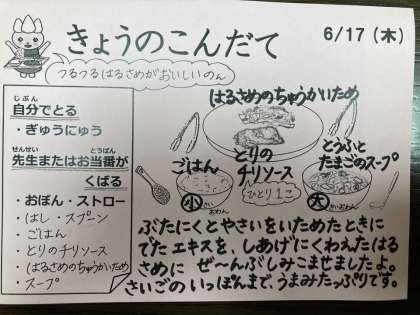 きょうのこんだて
6/17（木）
つるつるはるさめがおいしいのん
じぶん
自分でとる
・ぎゅうにゅう
せんせい とうばん
先生またはお当番が
くばる
・おぼん・ストロー
・はし・スプーン
・ごはん
・とりのチリソース
・はるさめのちゅうかいため
・スープ
はるさめのちゅうかいため
ごはん
小
さい
おわん
とりの
チリソース
ひとり1こ
とうふと
たまごのスープ
大
ぶたにくとやさいをいためたときに
でたエキスを、しあげにくわえたはる
さめに ぜ〜んぶしみこませましたよ。
さいごのいっぽんまで、うまみたっぷりです。